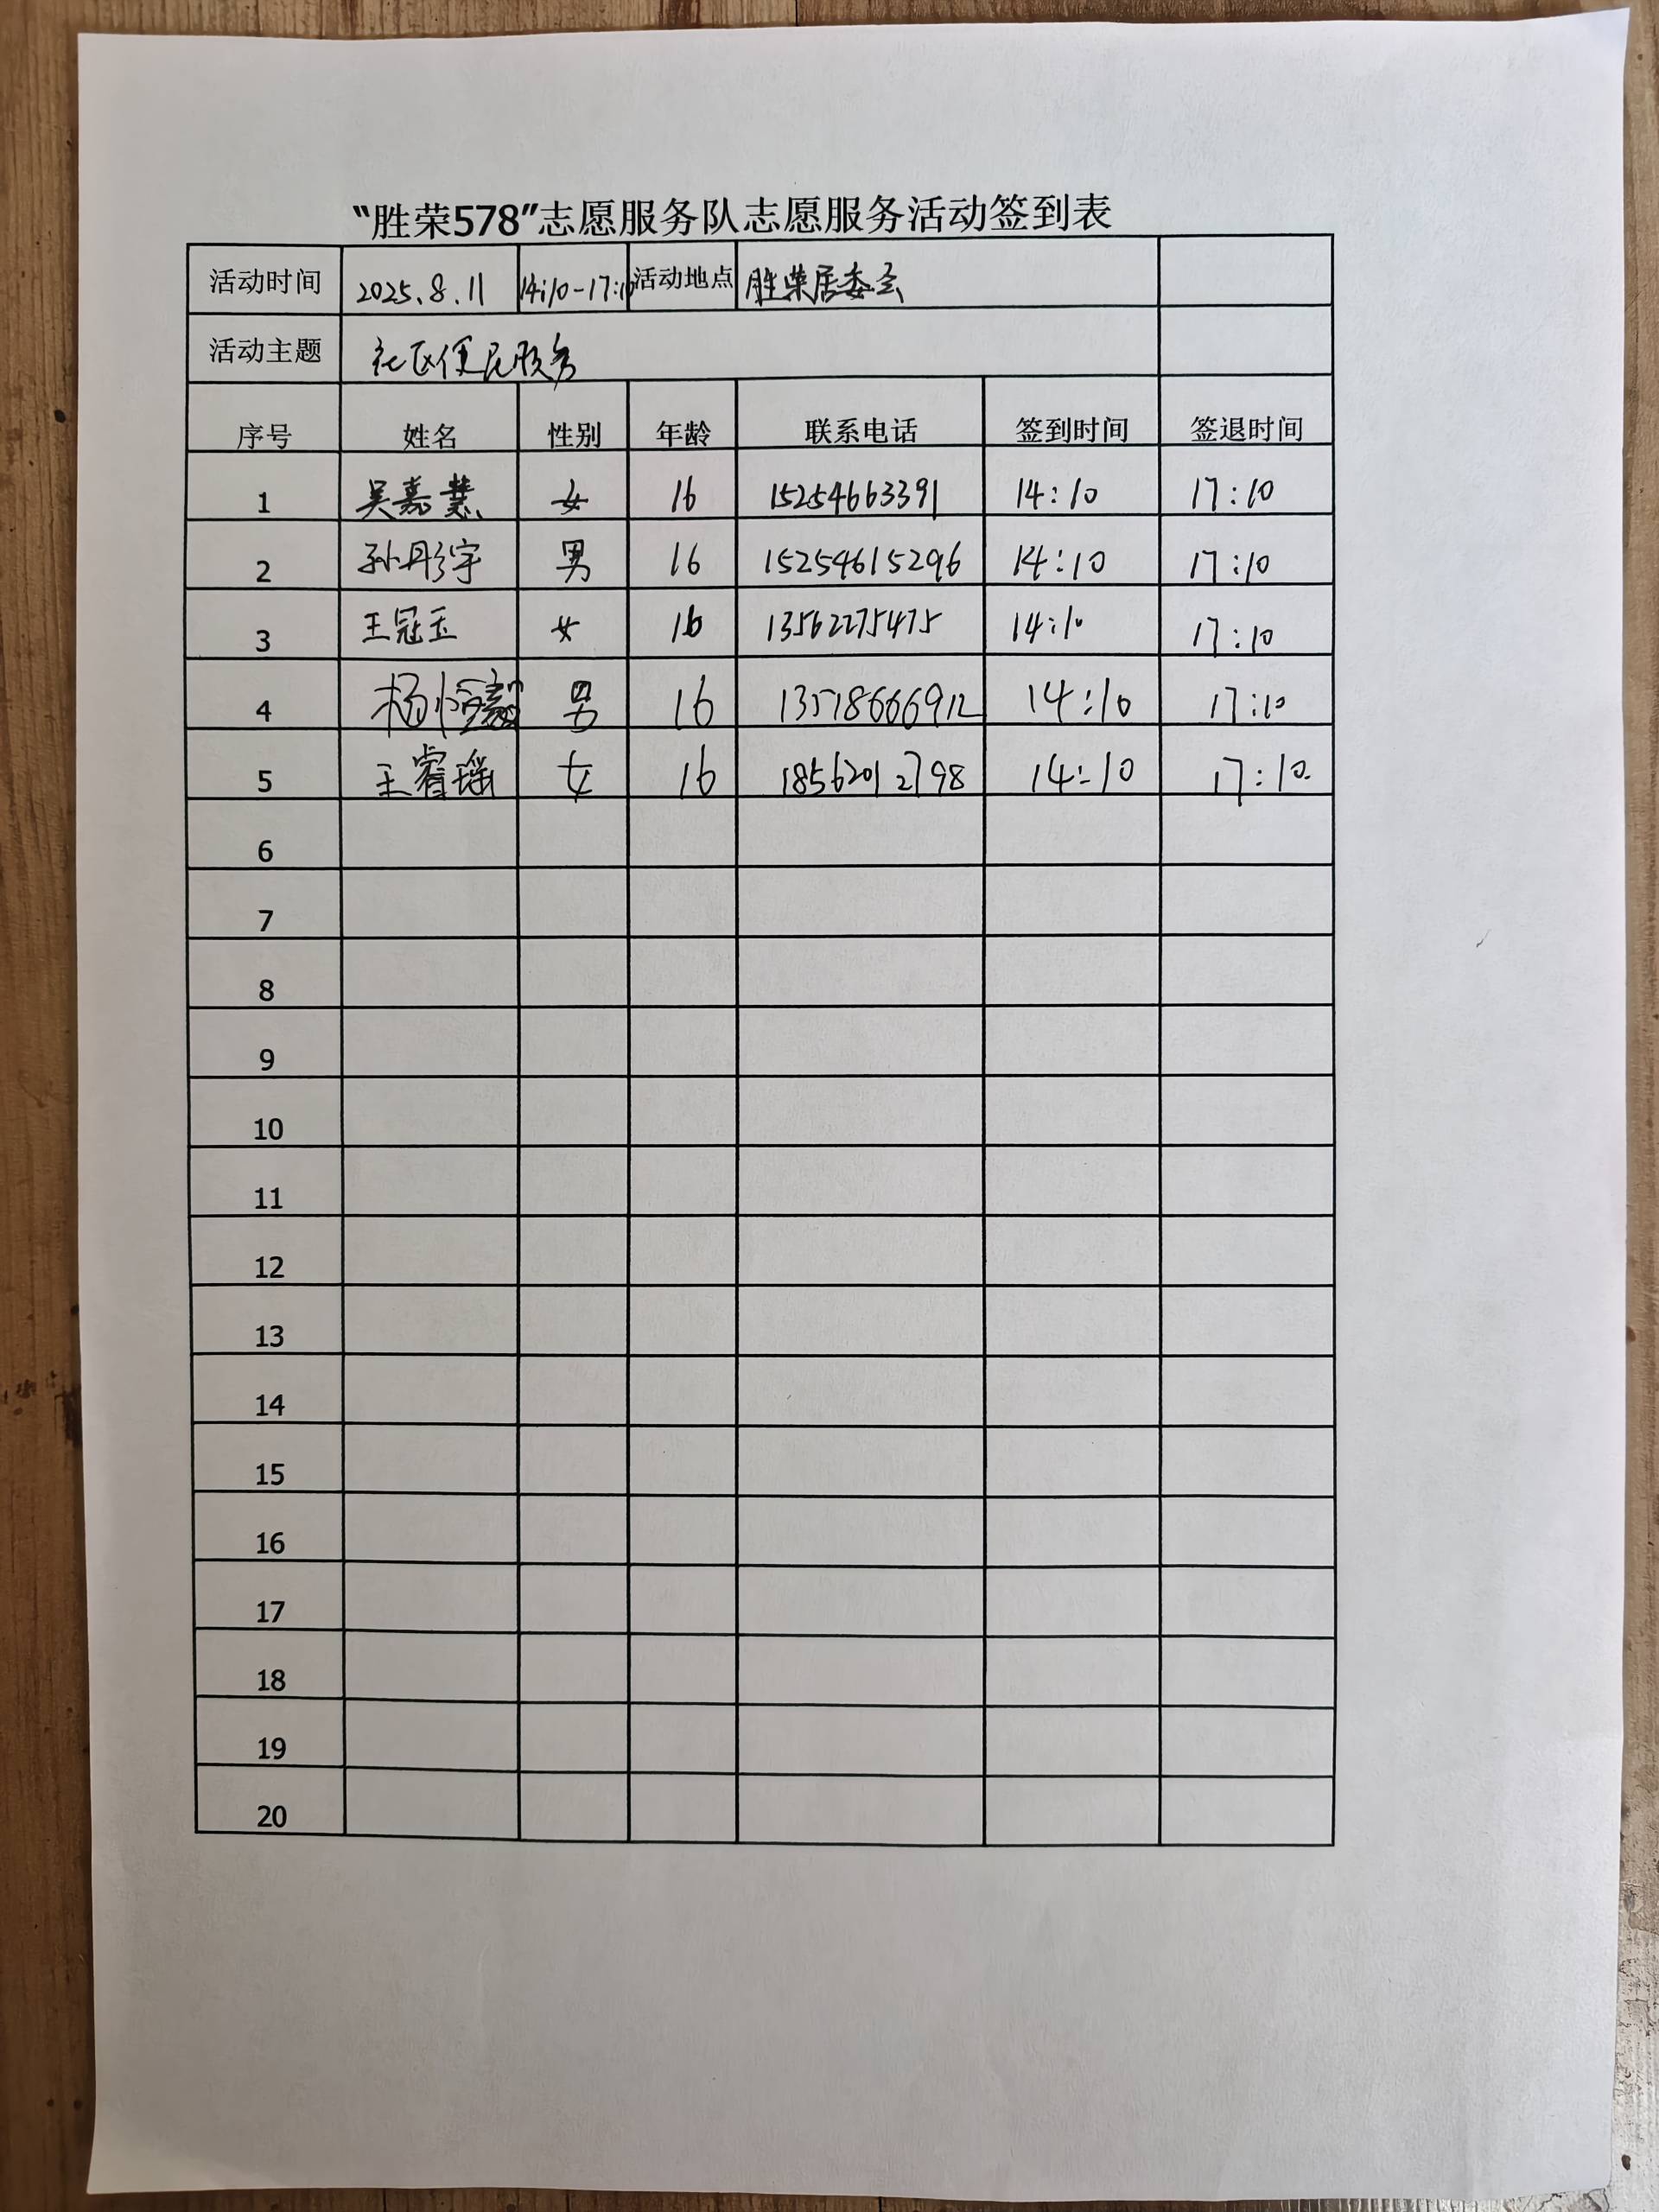 “胜荣578”志愿服务队志愿服务活动签到表
活动时间 2025.8.11 14:10-17:10 活动地点 胜荣居委会
活动主题 社区便民服务
序号 姓名 性别 年龄 联系电话 签到时间 签退时间
1 吴嘉慧 女 16 15254663391 14:10 17:10
2 孙丹彤宇 男 16 15254615296 14:10 17:10
3 王冠玉 女 16 13562275475 14:10 17:10
4 杨恒毅 男 16 13578666912 14:10 17:10
5 王睿瑶 女 16 18562012798 14:10 17:10.
6
7
8
9
10
11
12
13
14
15
16
17
18
19
20